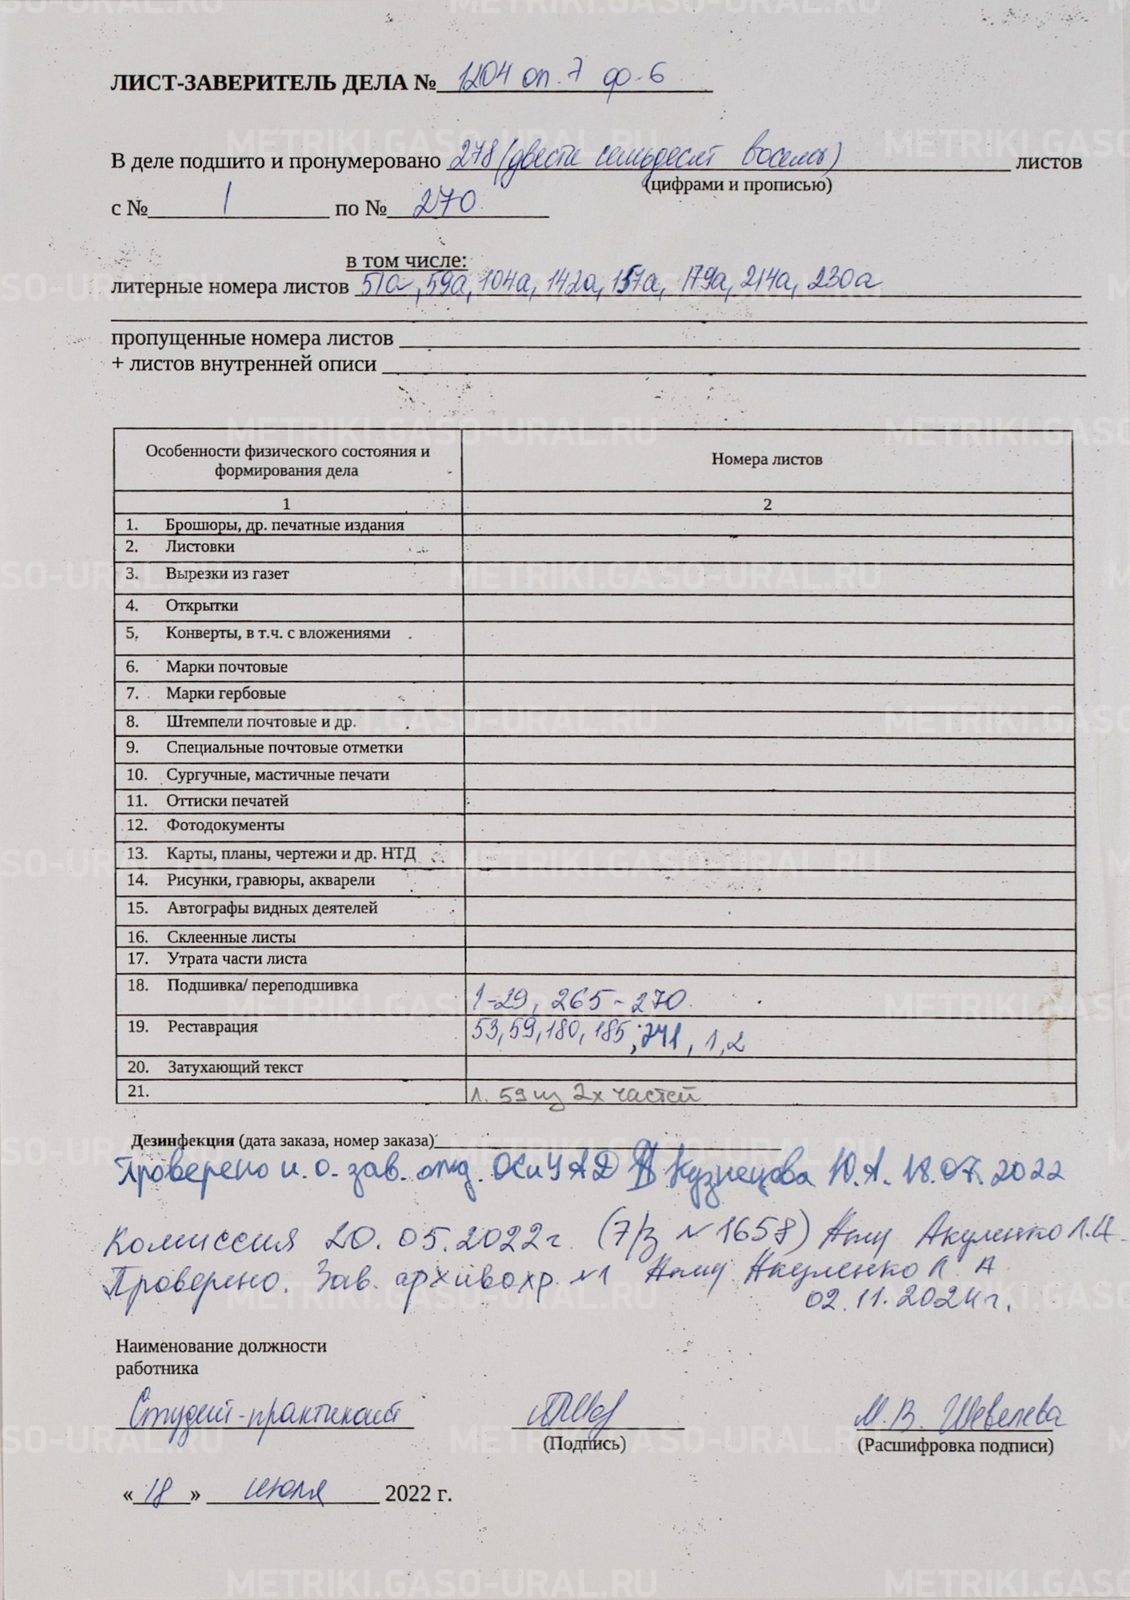 ЛИСТ-ЗАВЕРИТЕЛЬ ДЕЛА № 1204 оп. 7 ф. 6
В деле подшито и пронумеровано 278 (двести семьдесят восемь) листов
(цифрами и прописью)
с № 1 по № 270
в том числе:
литерные номера листов 51а, 59а, 104а, 142а, 157а, 179а, 214а, 230а
пропущенные номера листов
+ листов внутренней описи
Особенности физического состояния и формирования дела Номера листов
1 2
1. Брошюры, др. печатные издания
2. Листовки
3. Вырезки из газет
4. Открытки
5. Конверты, в т.ч. с вложениями
6. Марки почтовые
7. Марки гербовые
8. Штемпели почтовые и др.
9. Специальные почтовые отметки
10. Сургучные, мастичные печати
11. Оттиски печатей
12. Фотодокументы
13. Карты, планы, чертежи и др. НТД
14. Рисунки, гравюры, акварели
15. Автографы видных деятелей
16. Склеенные листы
17. Утрата части листа
18. Подшивка/ переподшивка 1-29, 265-270.
19. Реставрация 53, 59, 180, 185, 241, 1, 2
20. Затухающий текст
21. л. 59 из 2х частей
Дезинфекция (дата заказа, номер заказа)
Проверено и. о. зав. отд. ОКиУАД Кузнецова Ю.А. 18.07.2022
Комиссия 20.05.2022г. (7/з № 1658) Акуленко Л.А.
Проверено. Зав. архивохр. №1 Акуленко Л. А
02.11.2024г.
Наименование должности
работника
Студент-практикант М.В. Шевелева
(Подпись) (Расшифровка подписи)
«18» июля 2022 г.
METRIKI.GASO-URAL.RU